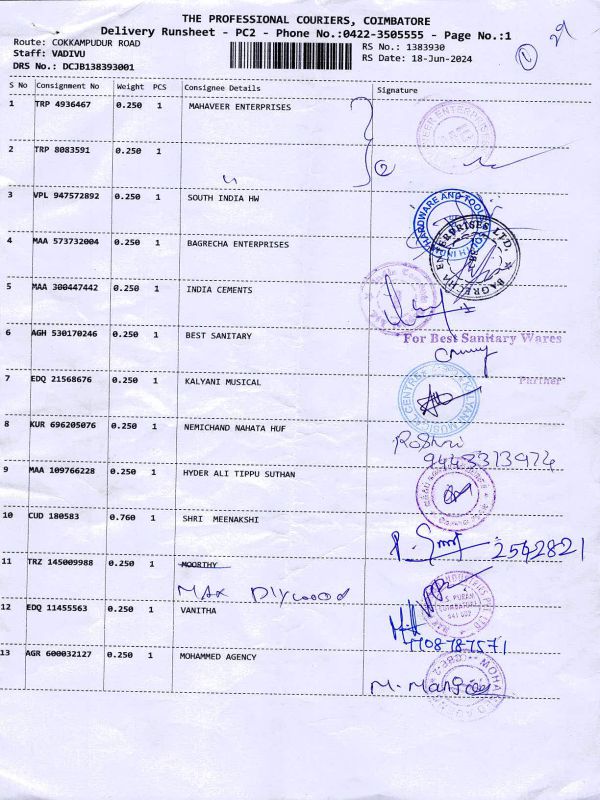 THE PROFESSIONAL COURIERS, COIMBATORE
Delivery Runsheet - PC2 - Phone No.:0422-3505555 - Page No.:1
Route: COKKAMPUDUR ROAD
Staff: VADIVU
DRS No.: DCJB138393001
RS No.: 1383930
RS Date: 18-Jun-2024
1
S No Consignment No Weight PCS Consignee Details Signature
1 TRP 4936467 0.250 1 MAHAVEER ENTERPRISES
2 TRP 8083591 0.250 1
2
3 VPL 947572892 0.250 1 SOUTH INDIA HW
HARDWARE AND TOOLS
4 MAA 573732004 0.250 1 BAGRECHA ENTERPRISES
BAGRECHA ENTERPRISES LTD.
5 MAA 300447442 0.250 1 INDIA CEMENTS
6 AGH 530170246 0.250 1 BEST SANITARY
For Best Sanitary Wares
Partner
7 EDQ 21568676 0.250 1 KALYANI MUSICAL
8 KUR 696205076 0.250 1 NEMICHAND NAHATA HUF
9443313974
9 MAA 109766228 0.250 1 HYDER ALI TIPPU SUTHAN
10 CUD 180583 0.760 1 SHRI MEENAKSHI
2542821
11 TRZ 145009988 0.250 1 MOORTHY
MAX Plywood
12 EDQ 11455563 0.250 1 VANITHA
13 AGR 600032127 0.250 1 MOHAMMED AGENCY